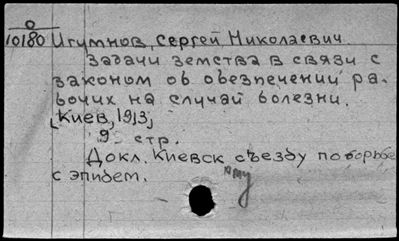 О
10180
Игумнов, Сергей Николаевич.
Задачи земства в связи с
законом об обезпечении ра-
бочих на случай болезни.
[Киев, 1913]
9 стр.
Докл. Киевск съезду по борьбе
с эпидем.